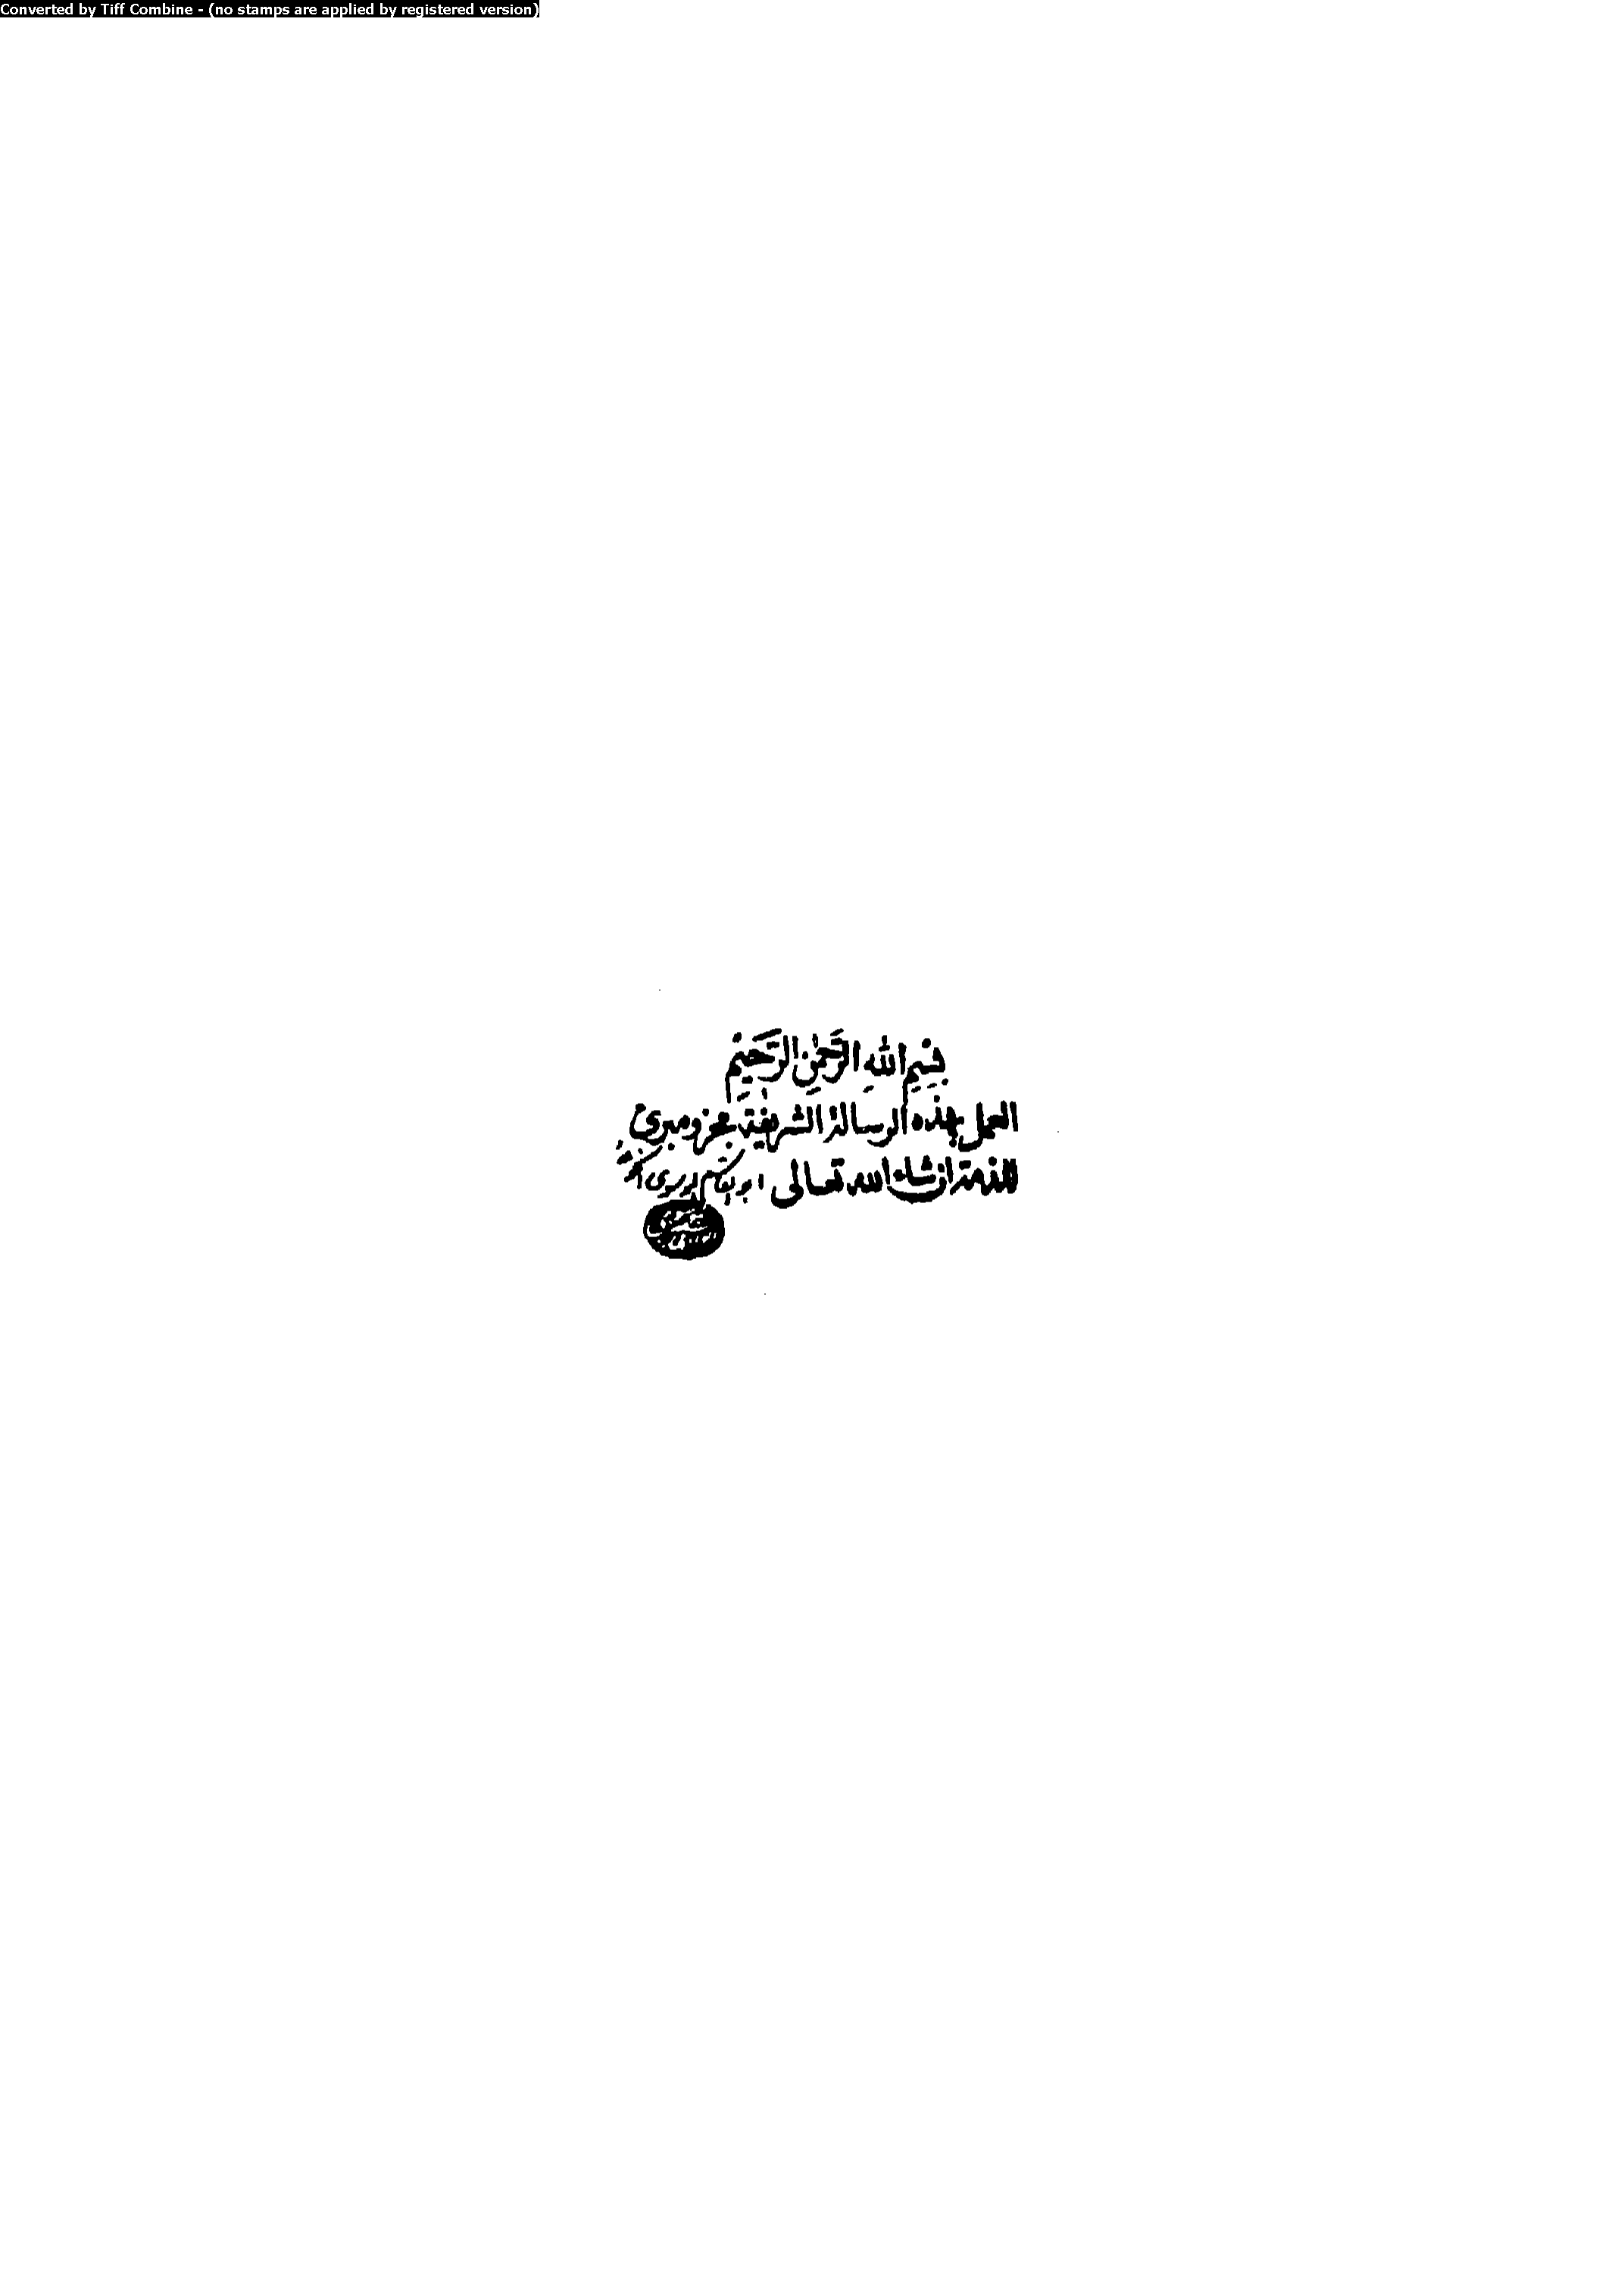 Converted by Tiff Combine - (no stamps are applied by registered version)
بِسْمِ اللهِ الرَّحْمٰنِ الرَّحِيْمِ
العمل بهذه الرسالة الشريفة مجزٍ ومبرئ
للذمة ان شاء الله تعالى ابو القاسم الموسوي الخوئي